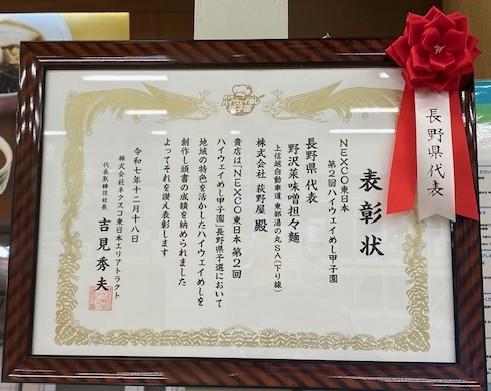 ハイウェイめし
甲子園
長野県代表
表彰状
NEXCO東日本
第2回ハイウェイめし甲子園
長野県 代表
野沢菜味噌担々麺
上信越自動車道 東部湯の丸SA(下り線)
株式会社 荻野屋 殿
貴店は「NEXCO東日本 第2回
ハイウェイめし甲子園」長野県予選において
地域の特色を活かしたハイウェイめしを
創作し頭書の成績を納められました
よってそれを讃え表彰します
令和七年十二月十八日
株式会社ネクスコ東日本エリアトラクト
代表取締役社長 吉見秀夫